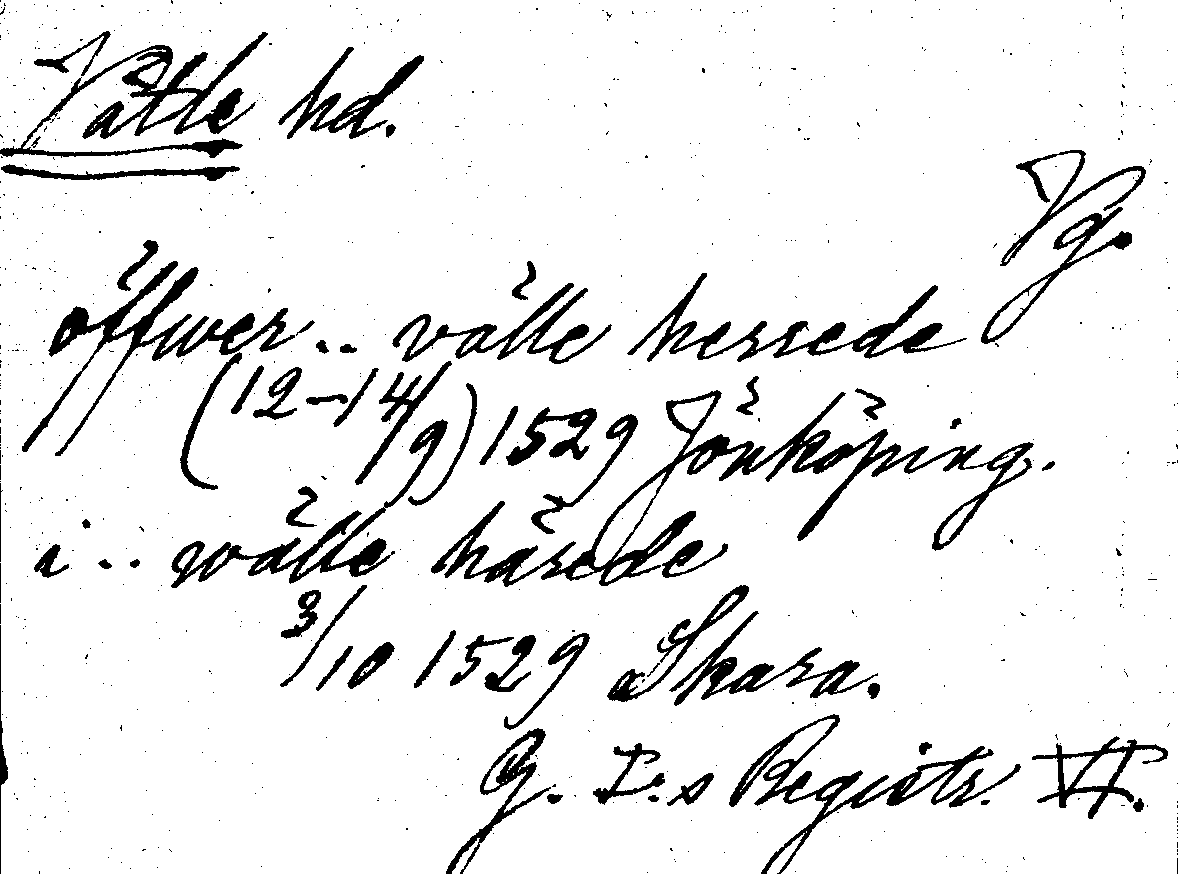 Vättle hd.
Vg.
öffwer.. välle herrede
(12–14/9) 1529 Jönköping.
i.. wälle härede
3/10 1529 Skara.
G. I:s Registr. VI.